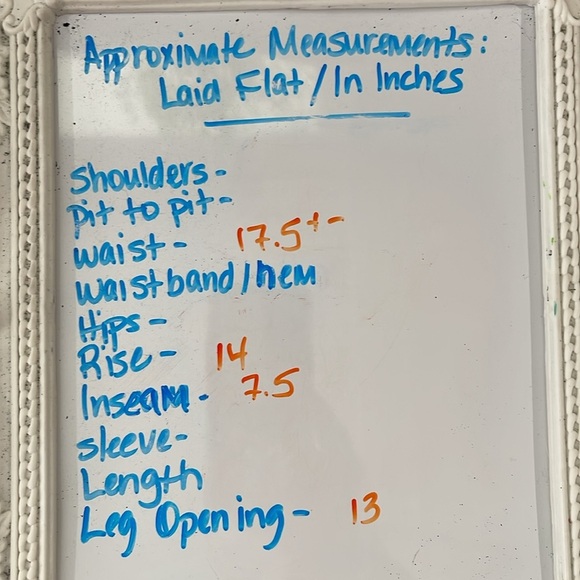 Approximate Measurements:
Laid Flat/In Inches
Shoulders-
pit to pit-
waist- 17.5+-
waistband/hem
Hips-
Rise- 14
Inseam- 7.5
sleeve-
Length
Leg Opening- 13